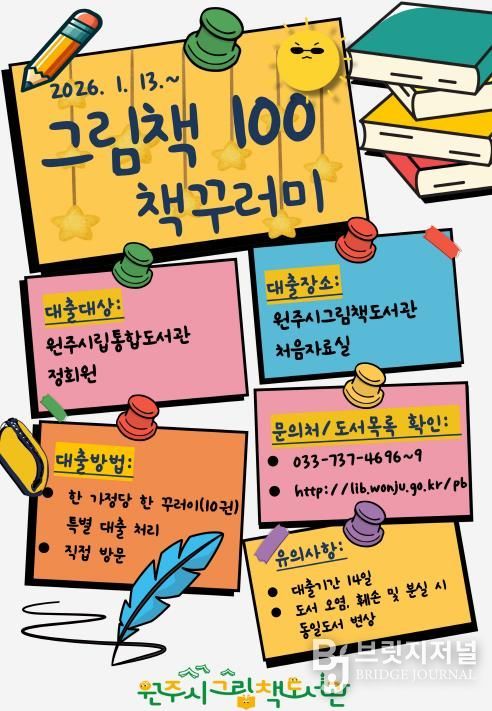 2026. 1. 13.~
그림책 100
책꾸러미
대출대상:
원주시립통합도서관
정회원
대출장소:
원주시그림책도서관
처음자료실
문의처/도서목록 확인:
033-737-4696~9
http://lib.wonju.go.kr/pb
대출방법:
한 가정당 한 꾸러미(10권)
특별 대출 처리
직접 방문
유의사항:
대출기간 14일
도서 오염, 훼손 및 분실 시
동일도서 변상
원주시그림책도서관
브릿지저널
BRIDGE JOURNAL